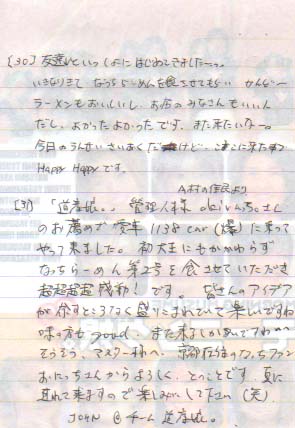 [30] 友達といっしょにはじめてきました〜っ
いきなりきて なっちらーめんを食させてもらい かんどー
ラーメンもおいしいし、お店のみなさんもいい人
だし、よかったよかったです。また来たいなー。
今日のうんせいさいあくだけど…ここに来たから
Happy Happyです。
A村の住民より
[31] 「道産娘。」管理人様
のお薦めで愛車1138 car (爆)に乗って
やって来ました。初太王にもかかわらず
なっちらーめん第2号を食させていただき
超超超超感動!です。皆さんのアイデア
が余すところなく盛りこまれていて楽しいですね
味の方もGood また来よしかないですわ
そうそう、マスター様へ、京都在住のなっちファン
おにっちさんからよろしく、とのことです 夏に
連れて来ますので楽しみにして下さい(笑)
JOHN @チーム道産娘。